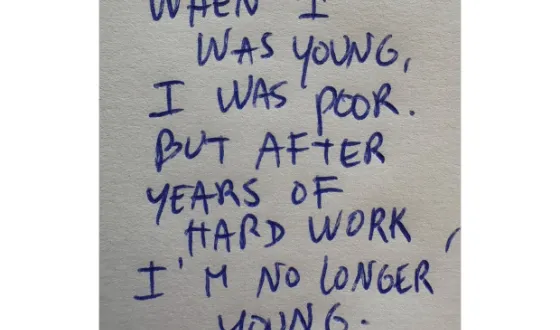 WHEN I
WAS YOUNG,
I WAS POOR.
BUT AFTER
YEARS OF
HARD WORK,
I'M NO LONGER
YOUNG.